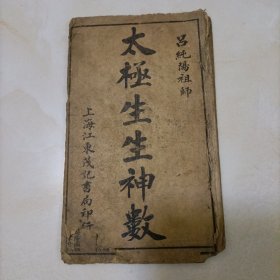 呂純陽祖師
太極生生神數
上海江東茂記書局印行